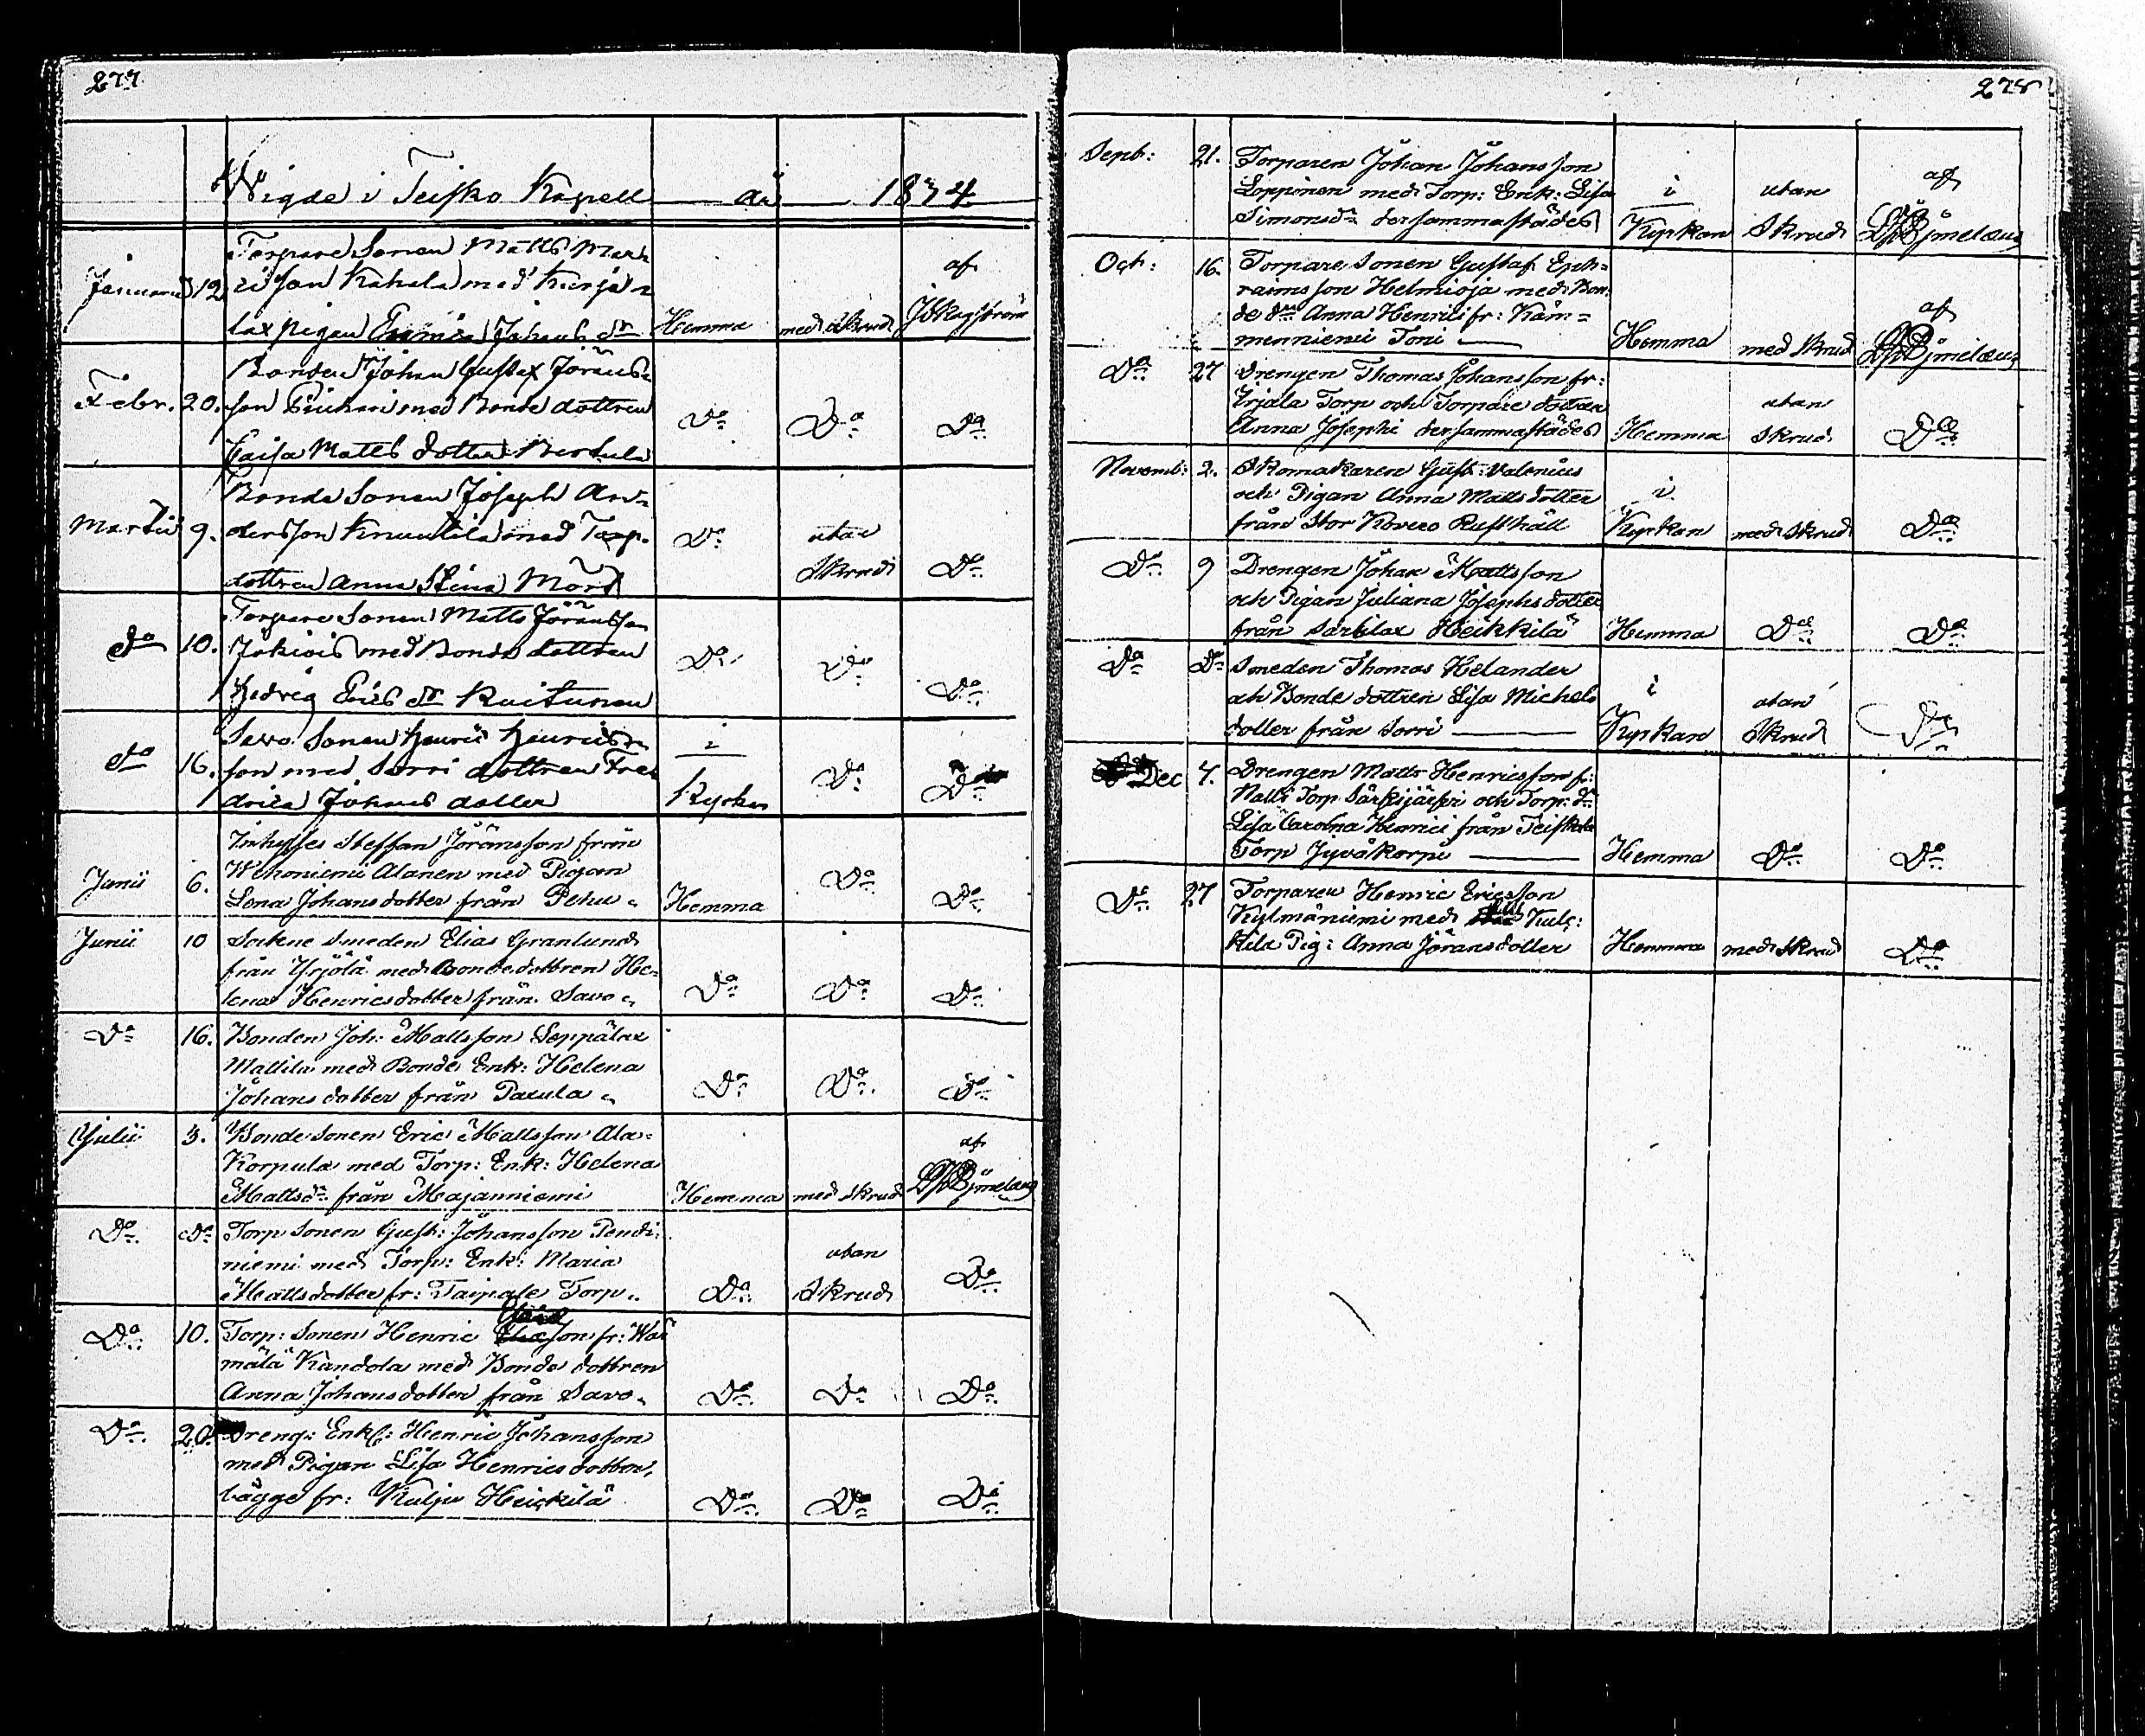 277
Wigde i Teisko Kapell år 1834
Januarii 12 Torpare Sonen Matts Mar
Kahala med
pigan Johans dr Hemma med skrud af
Febr. 20. Bonden Johan Gustaf Jörans
son med Bonde dottren
Caisa Matts dotter Do Do Do
Martii 9. Bonde Sonen Joseph An
dersson Knuutila med Torp.
dottren Anna Stina Do utan Skrud Do
do 10. Torpare Sonen Matts Jöransson
med Bonde dottren
Hedvig Erics dr Ruitunen Do Do Do
do 16. Savo Sonen Henric Henrics
son med Sorri dottren Fred
rica Johans dotter i Kyrkan Do Do
Junii 6. Inhyses Steffan Jöransson från
Wehoniemi Alanen med Pigan
Lena Johans dotter från Pehu Hemma Do Do
Junii 10 Sockne Smeden Elias Granlund
från Yrjölä med Bonde dottren He-
lena Henrics dotter från Savo Do Do Do
Do 16. Bonden Joh: Mattsson Seppälax
Mattila med Bonde Enk: Helena
Johans dotter från Pacula Do Do Do
Julii 3. Bonde Sonen Eric Mattsson Ala-
Korpula med Torp: Enk: Helena
Mattsdr från Majanniemi Hemma med skrud af Björnelaug
Do Do Torp Sonen Gust: Johansson Pendi-
niemi med Torp: Enk: Maria
Matts dotter fr: Taipale Torp Do utan Skrud Do
Do 10. Torp: Sonen Henric son fr: Wär
mälä Kandola med Bonde dottren
Anna Johans dotter från Savo Do Do Do
Do 20. Dreng: Enkl: Henric Johansson
med Pigan Lisa Henrics dotter,
bägge fr: Kulju Heickilä Do Do Do
278
Sept: 21. Torparen Johan Johansson
Lopponen med Torp: Enk: Lisa
Simonsdr dersammastädes i Kyrkan utan Skrud af Björnelaug
Oct: 16. Torpare Sonen Gustaf Eph=
raimsson Helmioja med Bon-
de dn Anna Henrici fr: Käm=
menniemi Toni Hemma med skrud af Björnelaug
Do 27 Drengen Thomas Johansson fr:
Yrjälä Torp och Torpare dotter
Anna Josephi dersammastädes Hemma utan Skrud Do
Novemb: 2. Skomakaren Gust: Valenius
och Pigan Anna Matts dotter
från Stor Kovero Rusthåll i Kyrkan med skrud Do
Do 9 Drengen Johan Mattsson
och Pigan Juliana Josephs dotter
från Sarkilax Heikkilä Hemma Do Do
Do Do Smeden Thomas Helander
och Bonde dottren Lisa Michels
dotter från Sorri i Kyrkan utan Skrud Do
Dec 7. Drengen Matts Henricsson fr:
Natti Torp Särkijärfvi och Torp: dr
Lisa Carolina Henrici från Teiskola
Torp Jyväkorpi Hemma Do Do
Do 27 Torparen Henric Ericsson
Kylmäniemi med
Kila Pig: Anna Jörans dotter Hemma med skrud Do